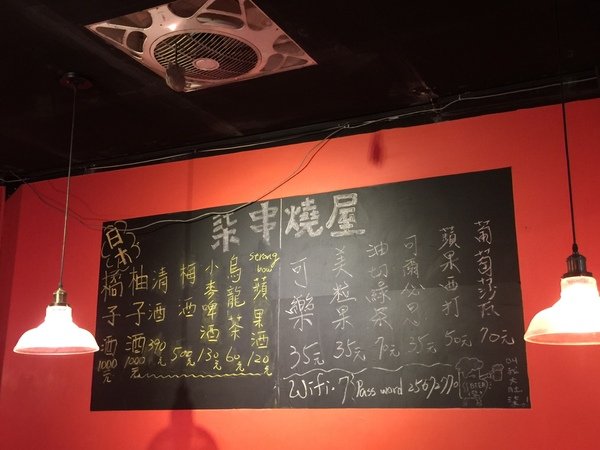 柒串燒屋
葡萄莎瓦 70元
蘋果西打 50元
可爾必思 35元
油切綠茶
美粒果 35元
可樂 35元
strong bow 蘋果酒 120元
烏龍茶 60元
小麥啤酒 130元
梅酒
清酒 390元
柚子酒 1000元
橘子酒 1000元
日本
Wifi. 7 Pass word
BEER